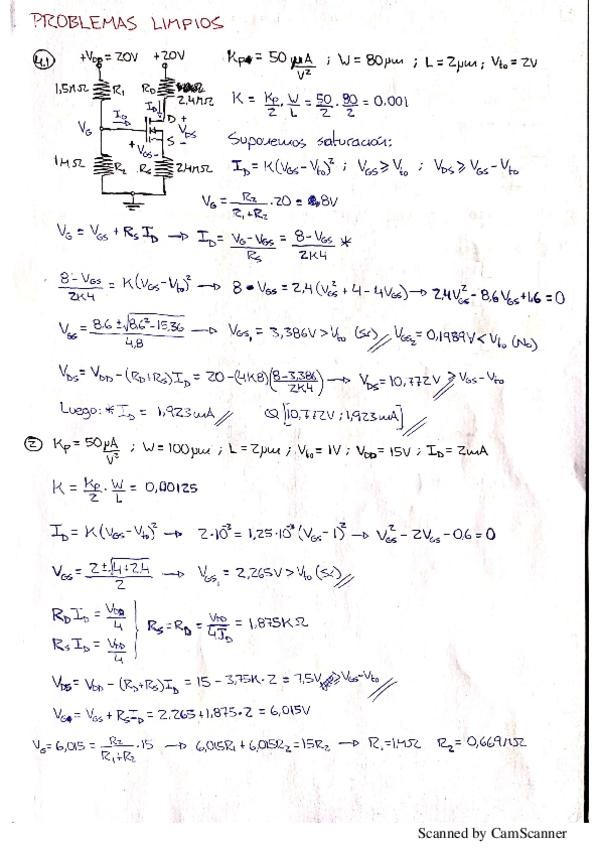 PROBLEMAS LIMPIOS
4.1 +VDD=20V +20V Kp = 50 μA/V² ; W = 80μm ; L = 2μm ; Vto = 2V
1,5MΩ R1 RD 2.4
K = Kp/2 · W/L = 50/2 · 80/2 = 0.001
ID D + VG VDS + VGS - S -
Suponemos saturación:
1MΩ R2 RS
ID = K(VGS-Vto)² ; VGS ≥ Vto ; VDS ≥ VGS-Vto
VG = R2/(R1+R2) · 20 = 8V
VG = VGS + RS ID → ID = (VG-VGS)/RS = (8-VGS)/2K4 *
(8-VGS)/2K4 = K(VGS-Vto)² → 8-VGS = 2,4(VGS²+4-4VGS) → 2,4VGS²-8,6VGS+1,6=0
VGS = (8.6 ± √(8,6²-15,36))/4,8 → VGS1 = 3,386V > Vto (Sí) VGS2 = 0,1989V < Vto (No)
VDS = VDD - (RD+RS)ID = 20-(4K8)((8-3,386)/2K4) → VDS = 10,772V ≥ VGS-Vto
Luego: * ID = 1,923mA Q[10,772V ; 1,923mA]
2 Kp = 50μA/V² ; W = 100μm ; L = 2μm ; Vto = 1V ; VDD = 15V ; ID = 2mA
K = Kp/2 · W/L = 0,00125
ID = K(VGS-Vto)² → 2·10⁻³ = 1,25·10⁻³(VGS-1)² → VGS²-2VGS-0.6=0
VGS = (2±√(4+2,4))/2 → VGS1 = 2,265V > Vto (Sí)
RD ID = VDD/4
RS = RD = VDD/4ID = 1,875KΩ
RS ID = VDD/4
VDS = VDD - (RD+RS)ID = 15 - 3,75K·2 = 7,5V ≥ VGS-Vto
VG = VGS + RS ID = 2.265+1,875·2 = 6,015V
VG = 6,015 = R2/(R1+R2) · 15 → 6,015R1 + 6,015R2 = 15R2 → R1=1MΩ R2 = 0,669MΩ
Scanned by CamScanner